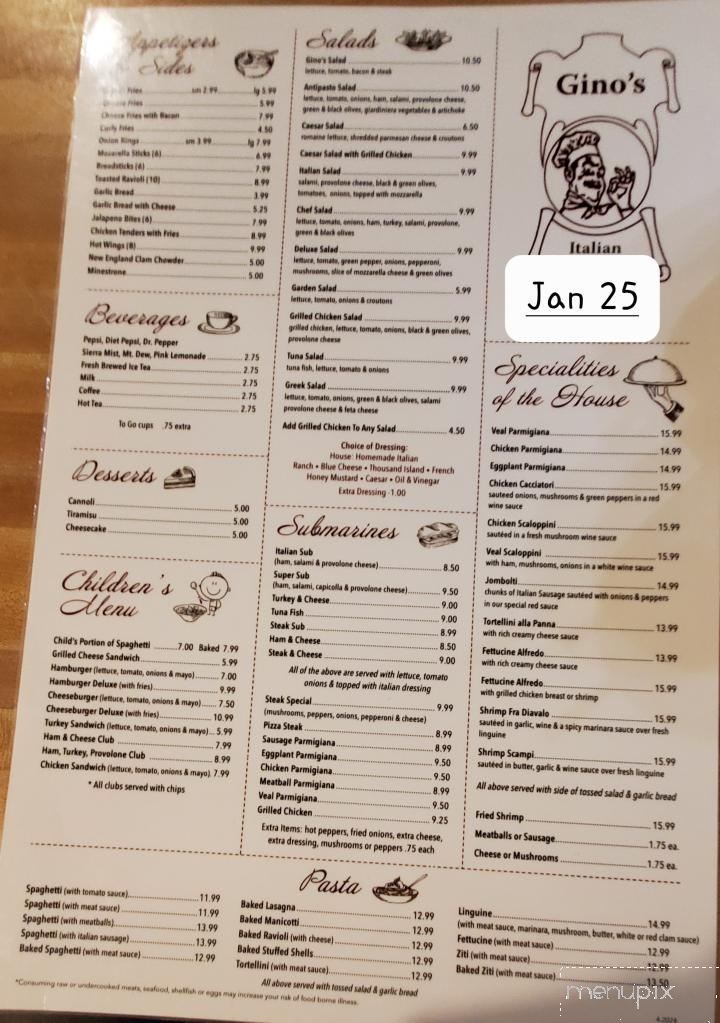 Appetizers
Sides
Fries sm 2.99 lg 5.99
Cheese Fries 5.99
Cheese Fries with Bacon 7.99
Curly Fries 4.50
Onion Rings sm 3.99 lg 7.99
Mozzarella Sticks (6) 6.99
Breadsticks (6) 7.99
Toasted Ravioli (10) 8.99
Garlic Bread 3.99
Garlic Bread with Cheese 5.25
Jalapeno Bites (6) 7.99
Chicken Tenders with Fries 8.99
Hot Wings (8) 9.99
New England Clam Chowder 5.00
Minestrone 5.00
Beverages
Pepsi, Diet Pepsi, Dr. Pepper
Sierra Mist, Mt. Dew, Pink Lemonade 2.75
Fresh Brewed Ice Tea 2.75
Milk 2.75
Coffee 2.75
Hot Tea 2.75
To Go cups .75 extra
Desserts
Cannoli 5.00
Tiramisu 5.00
Cheesecake 5.00
Children's
Menu
Child's Portion of Spaghetti 7.00 Baked 7.99
Grilled Cheese Sandwich 5.99
Hamburger (lettuce, tomato, onions & mayo) 7.00
Hamburger Deluxe (with fries) 9.99
Cheeseburger (lettuce, tomato, onions & mayo) 7.50
Cheeseburger Deluxe (with fries) 10.99
Turkey Sandwich (lettuce, tomato, onions & mayo) 5.99
Ham & Cheese Club 7.99
Ham, Turkey, Provolone Club 8.99
Chicken Sandwich (lettuce, tomato, onions & mayo) 7.99
* All clubs served with chips
Salads
Gino's Salad 10.50
lettuce, tomato, bacon & steak
Antipasto Salad 10.50
lettuce, tomato, onions, ham, salami, provolone cheese,
green & black olives, giardiniera vegetables & artichoke
Caesar Salad 6.50
romaine lettuce, shredded parmesan cheese & croutons
Caesar Salad with Grilled Chicken 9.99
Italian Salad 9.99
salami, provolone cheese, black & green olives,
tomatoes, onions, topped with mozzarella
Chef Salad 9.99
lettuce, tomato, onions, ham, turkey, salami, provolone,
green & black olives
Deluxe Salad 9.99
lettuce, tomato, green pepper, onions, pepperoni,
mushrooms, slice of mozzarella cheese & green olives
Garden Salad 5.99
lettuce, tomato, onions & croutons
Grilled Chicken Salad 9.99
grilled chicken, lettuce, tomato, onions, black & green olives,
provolone cheese
Tuna Salad 9.99
tuna fish, lettuce, tomato & onions
Greek Salad 9.99
lettuce, tomato, onions, green & black olives, salami
provolone cheese & feta cheese
Add Grilled Chicken To Any Salad 4.50
Choice of Dressing:
House: Homemade Italian
Ranch • Blue Cheese • Thousand Island • French
Honey Mustard • Caesar • Oil & Vinegar
Extra Dressing -1.00
Submarines
Italian Sub
(ham, salami & provolone cheese) 8.50
Super Sub
(ham, salami, capicolla & provolone cheese) 9.50
Turkey & Cheese 9.00
Tuna Fish 9.00
Steak Sub 8.99
Ham & Cheese 8.50
Steak & Cheese 9.00
All of the above are served with lettuce, tomato
onions & topped with italian dressing
Steak Special 9.99
(mushrooms, peppers, onions, pepperoni & cheese)
Pizza Steak 8.99
Sausage Parmigiana 8.99
Eggplant Parmigiana 9.50
Chicken Parmigiana 9.50
Meatball Parmigiana 8.99
Veal Parmigiana 9.50
Grilled Chicken 9.25
Extra Items: hot peppers, fried onions, extra cheese,
extra dressing, mushrooms or peppers .75 each
Gino's
Italian
Jan 25
Specialities
of the House
Veal Parmigiana 15.99
Chicken Parmigiana 14.99
Eggplant Parmigiana 14.99
Chicken Cacciatori 15.99
sauteed onions, mushrooms & green peppers in a red
wine sauce
Chicken Scaloppini 15.99
sautéed in a fresh mushroom wine sauce
Veal Scaloppini 15.99
with ham, mushrooms, onions in a white wine sauce
Jombolti 14.99
chunks of Italian Sausage sautéed with onions & peppers
in our special red sauce
Tortellini alla Panna 13.99
with rich creamy cheese sauce
Fettucine Alfredo 13.99
with rich creamy cheese sauce
Fettucine Alfredo 15.99
with grilled chicken breast or shrimp
Shrimp Fra Diavalo 15.99
sautéed in garlic, wine & a spicy marinara sauce over fresh
linguine
Shrimp Scampi 15.99
sautéed in butter, garlic & wine sauce over fresh linguine
All above served with side of tossed salad & garlic bread
Fried Shrimp 15.99
Meatballs or Sausage 1.75 ea.
Cheese or Mushrooms 1.75 ea.
Pasta
Spaghetti (with tomato sauce) 11.99
Spaghetti (with meat sauce) 11.99
Spaghetti (with meatballs) 13.99
Spaghetti (with italian sausage) 13.99
Baked Spaghetti (with meat sauce) 12.99
Baked Lasagna 12.99
Baked Manicotti 12.99
Baked Ravioli (with cheese) 12.99
Baked Stuffed Shells 12.99
Tortellini (with meat sauce) 12.99
All above served with tossed salad & garlic bread
Linguine 14.99
(with meat sauce, marinara, mushroom, butter, white or red clam sauce)
Fettucine (with meat sauce) 12.99
Ziti (with meat sauce) 12.99
Baked Ziti (with meat sauce) 13.50
*Consuming raw or undercooked meats, seafood, shellfish or eggs may increase your risk of food borne illness.
menupix
4.2024